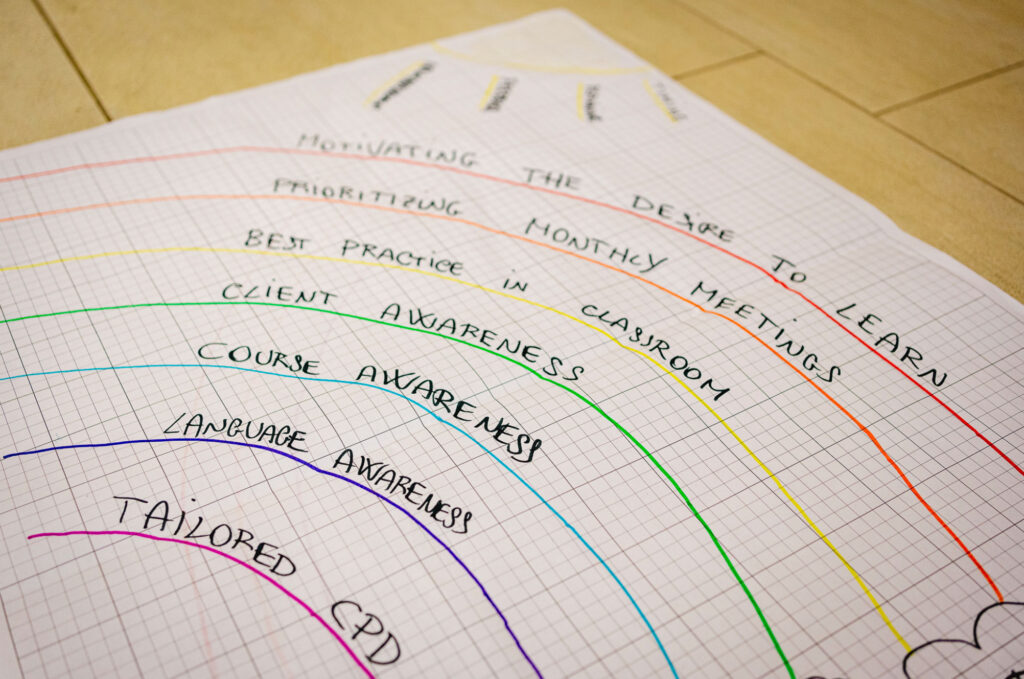 MOTIVATING THE DESIRE TO LEARN
PRIORITIZING MONTHLY MEETINGS
BEST PRACTICE IN CLASSROOM
CLIENT AWARENESS
COURSE AWARENESS
LANGUAGE AWARENESS
TAILORED CPD